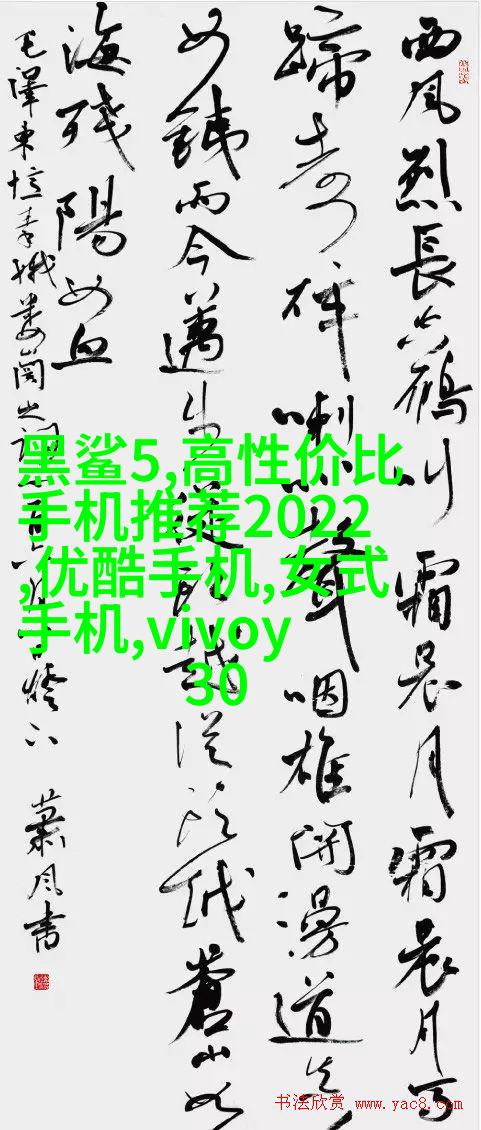 西風烈長空鴈叫霜晨月霜晨月馬
蹄聲碎喇叭聲咽雄關漫道真
如鐵而今邁步從頭越從頭越蒼山如
海殘陽如血
毛澤東憶秦娥婁山關之詞 蕭風書
黑鲨5,高性价比
手机推荐2022
,优酷手机,女式
手机,vivoy
30
书法欣赏 www.yac8.com